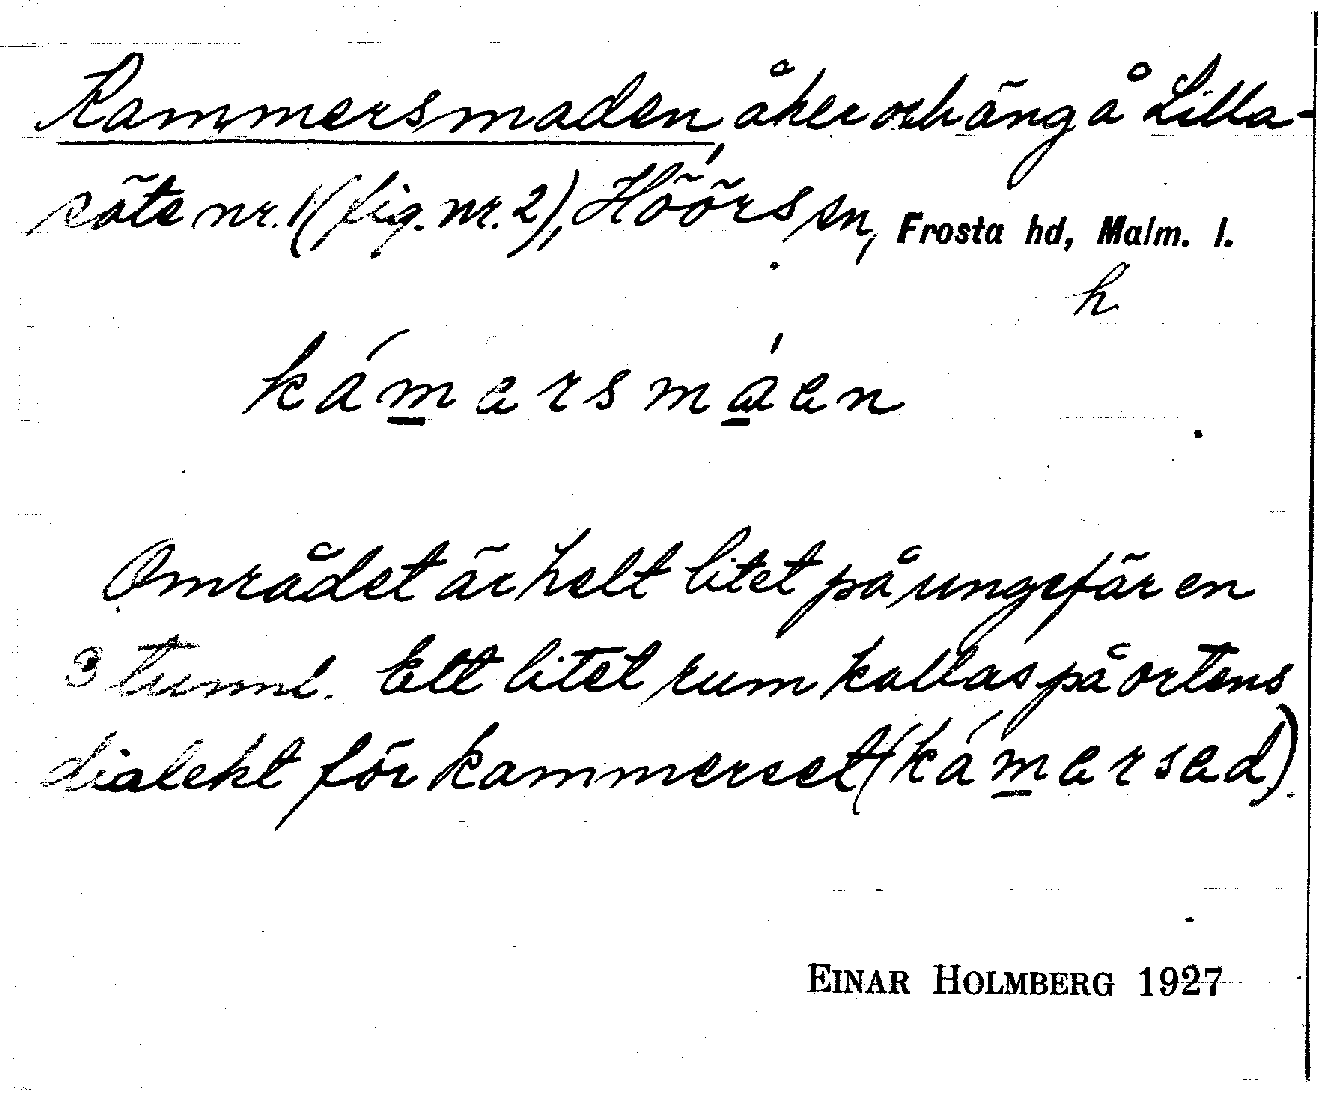 Kammersmaden, åker och äng å Lilla-
säte nr. 1 (fig. nr. 2), Höörs sn, Frosta hd, Malm. l.
h
kámersmáen
Området är helt litet på ungefär en
3 tunnl. Ett litet rum kallas på ortens
dialekt för kammerset (kámersed).
EINAR HOLMBERG 1927